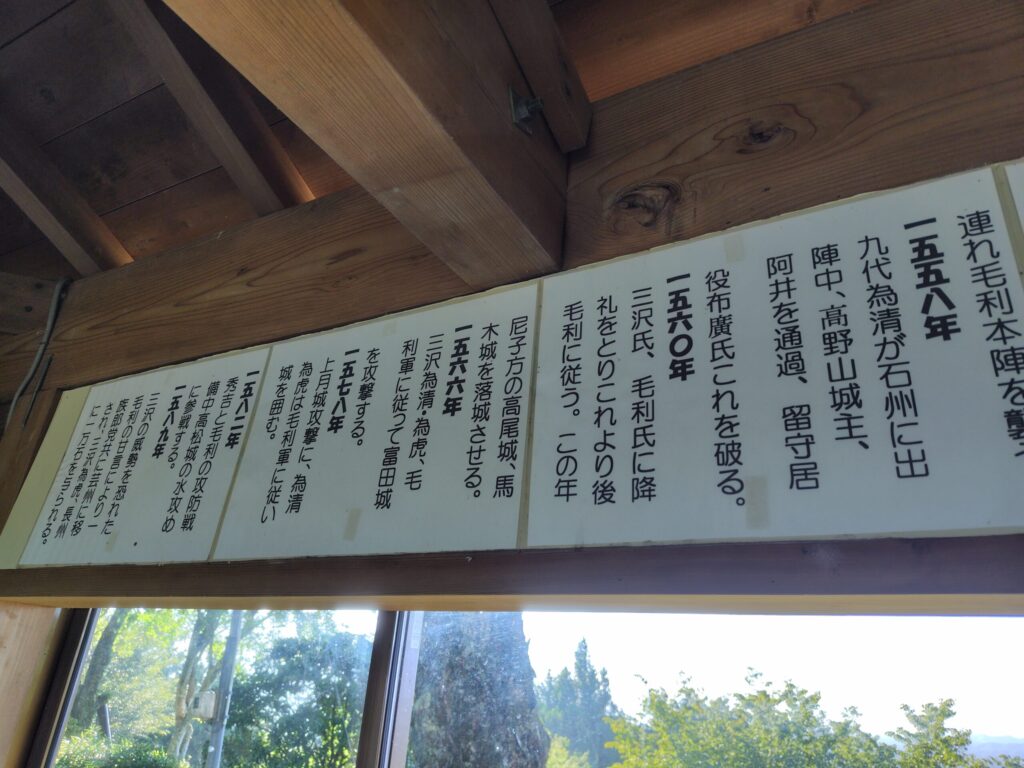 連れ毛利本陣を襲
一五五八年
九代為清が石州に出
陣中、高野山城主、
阿井を通過、留守居
役布廣氏これを破る。
一五六〇年
三沢氏、毛利氏に降
礼をとりこれより後
毛利に従う。この年
尼子方の高尾城、馬
木城を落城させる。
一五六六年
三沢為清・為虎、毛
利軍に従って富田城
を攻撃する。
一五七八年
上月城攻撃に、為清
為虎は毛利軍に従い
城を囲む。
一五八二年
秀吉と毛利の攻防戦
備中高松城の水攻め
に参戦する。
一五八九年
三沢の威勢を恐れた
毛利の甘言により一
族郎党共に芸州に移
され、三沢為虎、長州
に一万石を与られる。